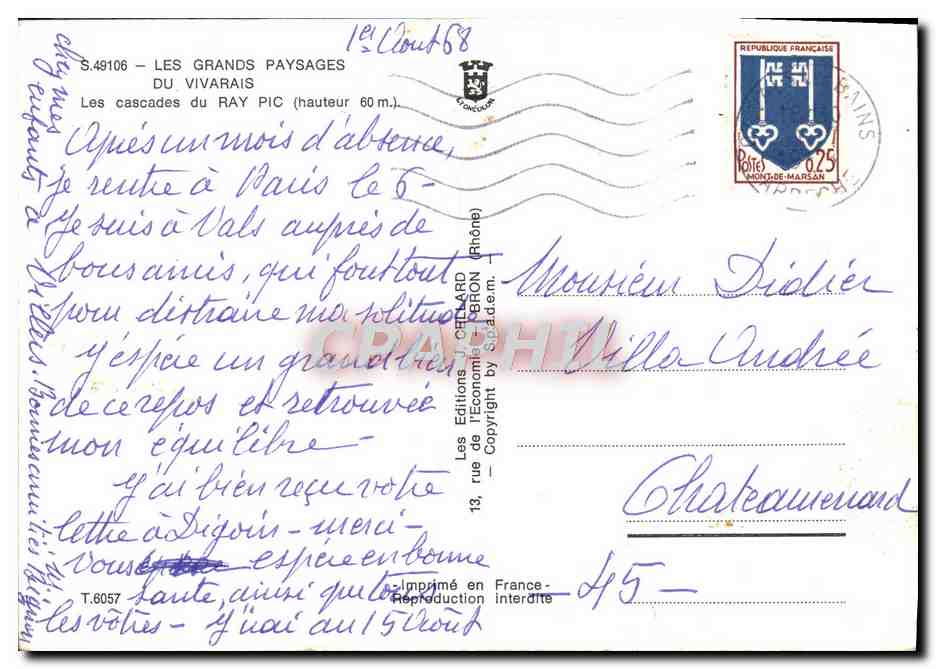 1er Août 68
S.49106 – LES GRANDS PAYSAGES
DU VIVARAIS
Les cascades du RAY PIC (hauteur 60 m.).
Après un mois d'absence,
je rentre à Paris le 6 –
Je suis à Vals auprès de
bons amis, qui font tout
pour distraire ma solitude
J'espère un grand bien
de ce repos et retrouvée
mon équilibre –
J'ai bien reçu votre
lettre à Digoin – merci –
Vous espère en bonne
santé, ainsi que tous
les vôtres – J'irai au 15 Août
chez mes
enfants à Villers. Bonnes amitiés
T.6057
Les Editions J. CELLARD
13, rue de l'Economie – BRON (Rhône)
– Copyright by S.p.a.d.e.m. –
Imprimé en France -
Reproduction interdite
REPUBLIQUE FRANÇAISE
POSTES 0,25
MONT-DE-MARSAN
BAINS
Monsieur Didier
Villa Andrée
Chateaurenard
– 45 –
CPAPHIL